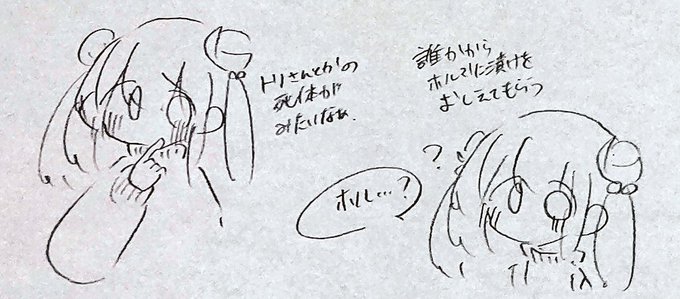 トリさんとかの
死体が
みたいなぁ.
誰かから
ホルマリン漬けを
おしえてもらう
?
ホル…?